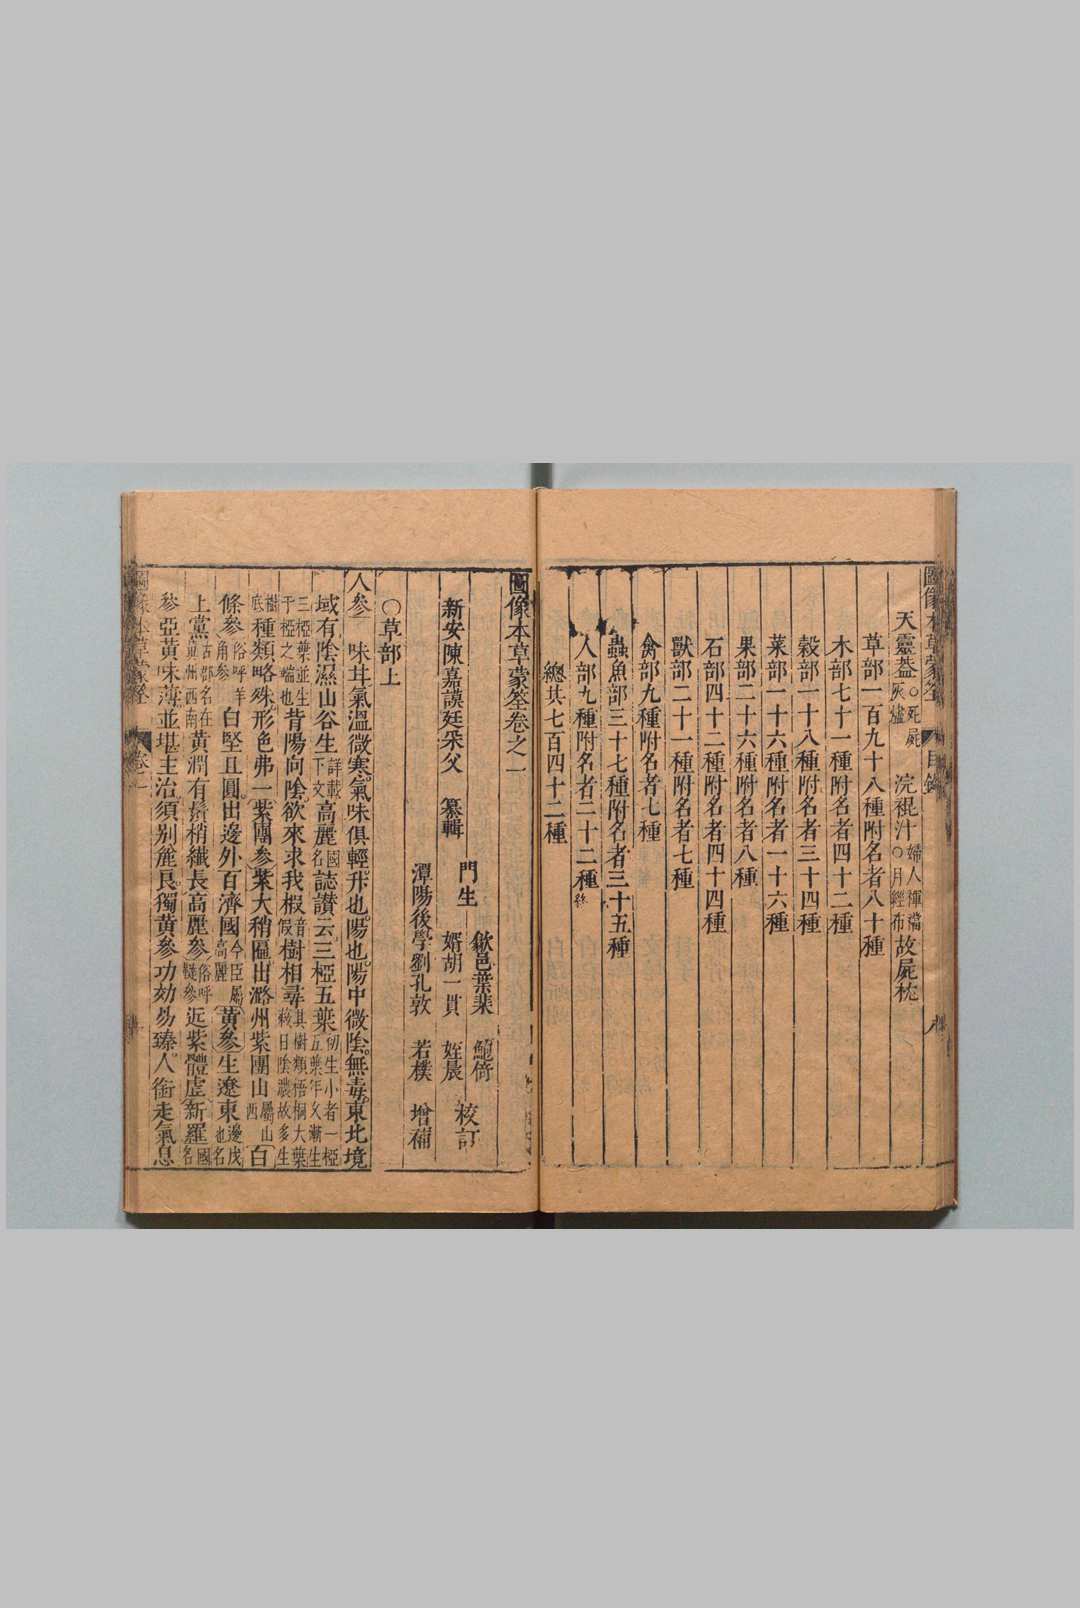 圖像本草蒙筌 目錄
天靈蓋○死屍灰爐 浣裩汁婦人褌襠○月經布故屍枕
草部一百九十八種附名者八十種
木部七十一種附名者四十二種
穀部一十八種附名者三十四種
菜部一十六種附名者一十六種
果部二十六種附名者八種
石部四十二種附名者四十四種
獸部二十一種附名者七種
禽部九種附名者七種
蟲魚部三十七種附名者三十五種
人部九種附名者二十二種
總共七百四十二種
圖像本草蒙筌卷之一
新安陳嘉謨廷采父 纂輯
門生 歙邑葉棐 鮑倚
婿胡一貫 姪晨 校訂
潭陽後學劉孔敦 若樸 增補
○草部上
人參 味甘氣溫微寒氣味俱輕升也陽也陽中微陰無毒東北境
域有陰濕山谷生詳載下文高麗國名誌讚云三椏五葉初生小者一椏五葉年久漸生
三椏葉並生于椏之端也背陽向陰欲來求我椵音假樹相尋其樹類梧桐大葉栽日陰濃故多生
樹底種類略殊形色弗一紫團參紫大稍匾出潞州紫團山屬山西白
條參俗呼羊角參白堅且圓出邊外百濟國今臣屬高麗黃參生遼東邊戍也名
上黨古郡名在冀州西南黃潤有鬚稍纖長高麗參俗呼韃參近紫體虛新羅國名
參亞黃味薄並堪主治須別麄良獨黃參功効易臻人銜走氣息
圖像本草蒙筌 卷一